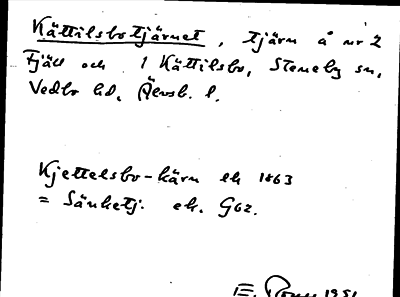 Kättilsbotjärnet, tjärn å nr 2
Fjäll och 1 Kättilsbo, Steneby sn,
Vedbo hd, Älvsb. l.
Kjettelsbo-kärn ek 1863
= Sänketj. ek. G62.
E. 1951